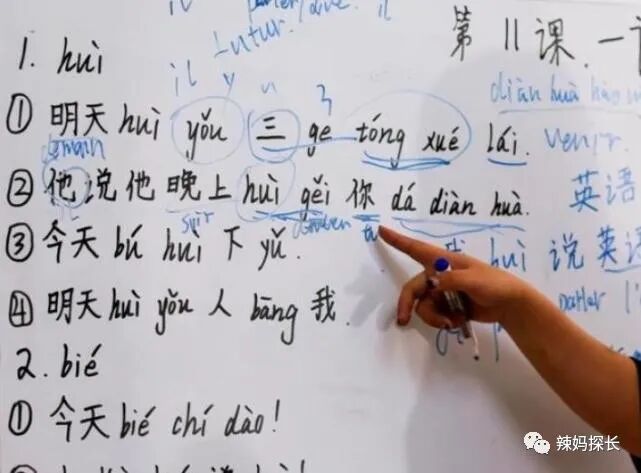 第11课
futur
il y
1. huì
diàn huà hào
① 明天 huì yǒu 三 ge tóng xué lái. venir
demain
② 他说他晚上 huì gěi 你 dá diàn huà. 英语
il soir tu
③ 今天 bú huì 下 yǔ. huì 说英语
④ 明天 huì yǒu 人 bāng 我. parler
2. bié
① 今天 bié chí dào!
辣妈探长